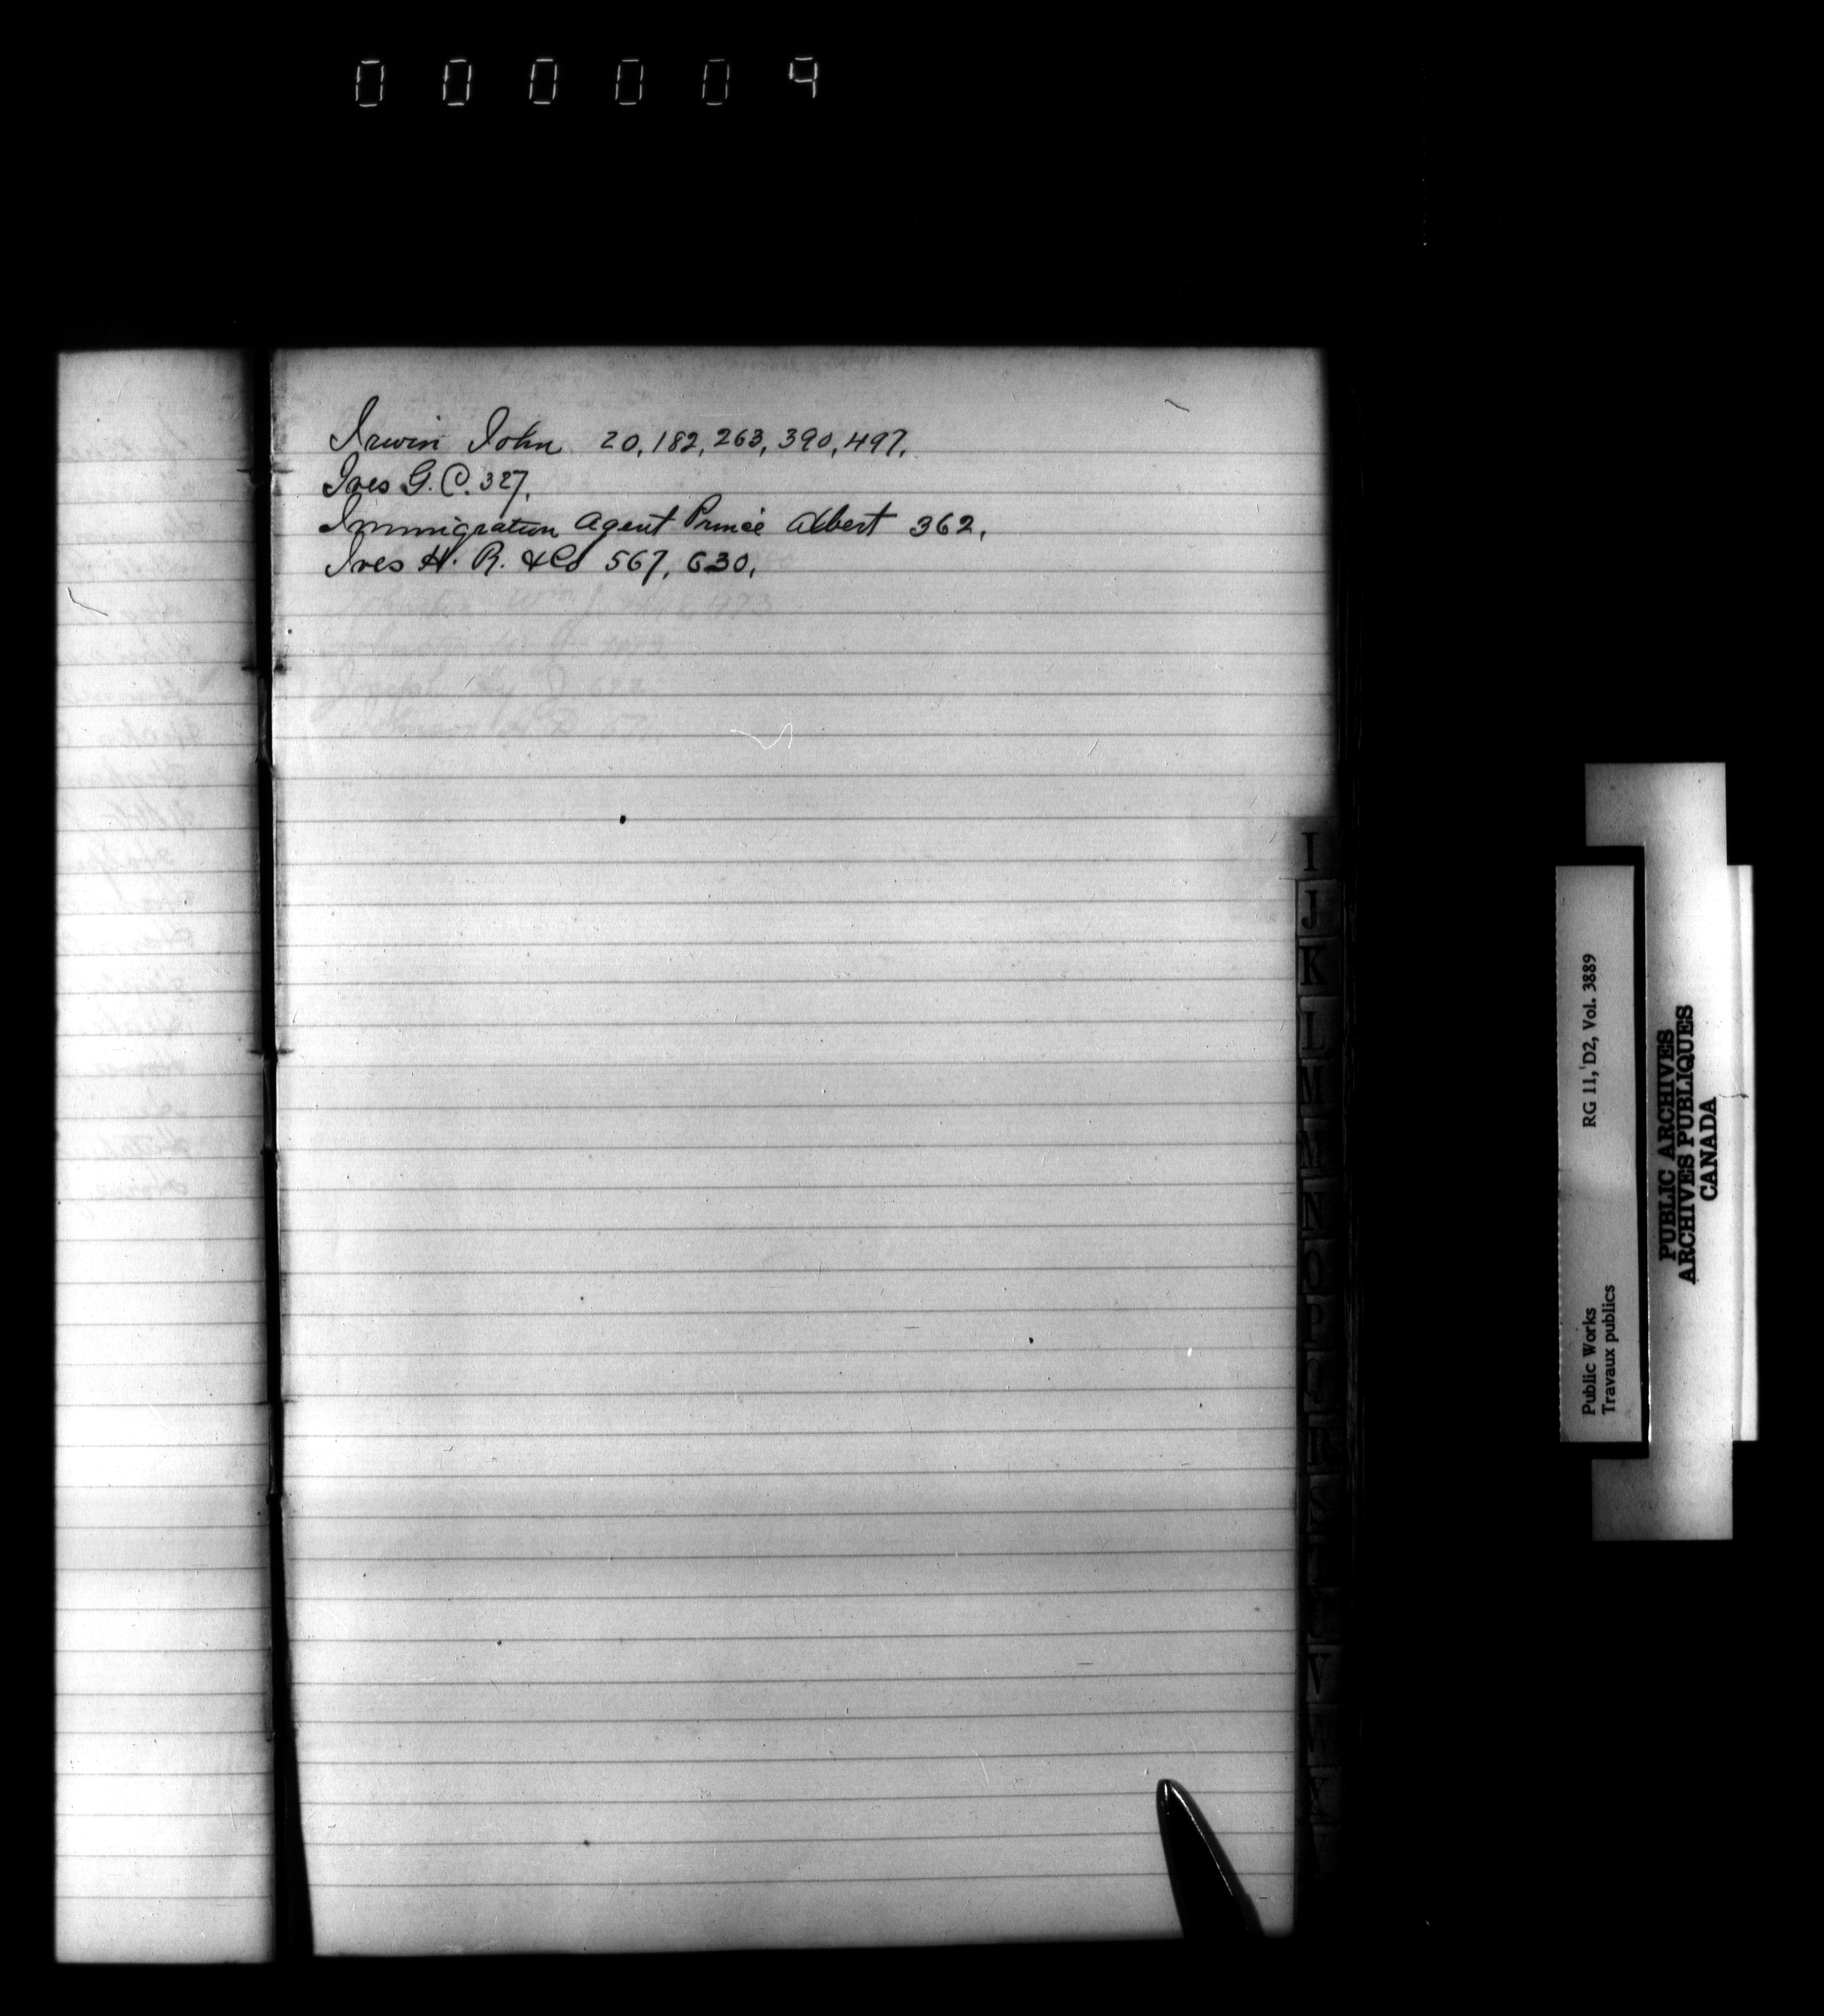 000009
Irwin John 20, 182, 263, 390, 497.
Ives G. C. 327.
Immigration Agent Prince Albert 362.
Ives H. R. & Co 567, 630.
I
J
K
L
M
N
O
P
Q
R
S
V
W
Public Works
Travaux publics
RG 11, D2, Vol. 3889
PUBLIC ARCHIVES
ARCHIVES PUBLIQUES
CANADA